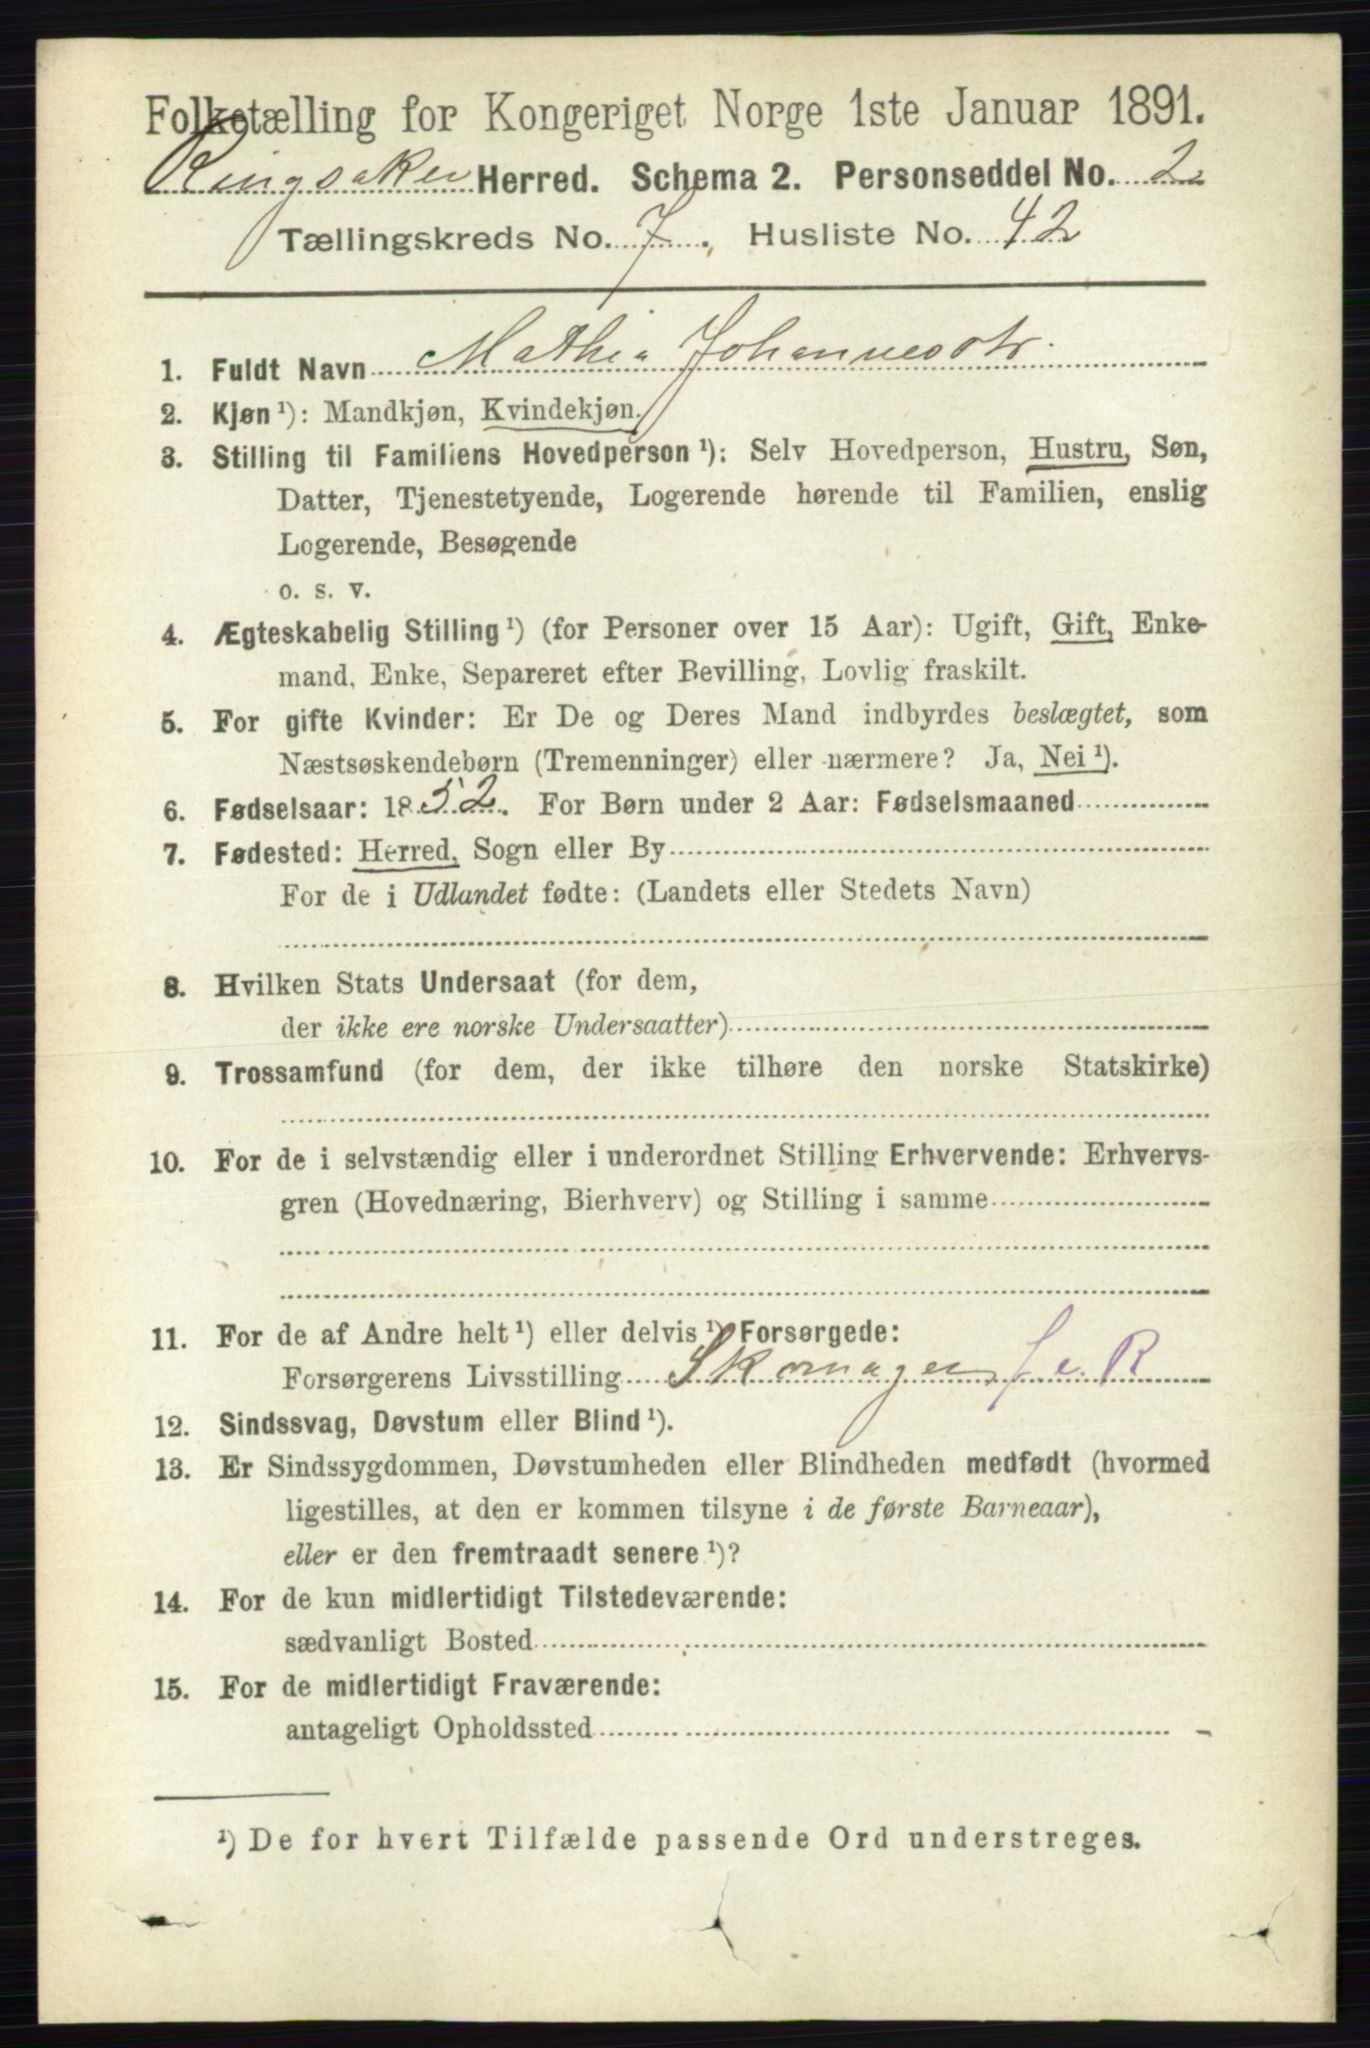 Folketælling for Kongeriget Norge 1ste Januar 1891.
Ringsaker Herred. Schema 2. Personseddel No. 2
Tællingskreds No. 7. Husliste No. 42
1. Fuldt Navn Mathia Johannesdtr.
2. Kjøn ¹): Mandkjøn, Kvindekjøn.
3. Stilling til Familiens Hovedperson ¹): Selv Hovedperson, Hustru, Søn,
Datter, Tjenestetyende, Logerende hørende til Familien, enslig
Logerende, Besøgende
o. s. v.
4. Ægteskabelig Stilling ¹) (for Personer over 15 Aar): Ugift, Gift, Enke-
mand, Enke, Separeret efter Bevilling, Lovlig fraskilt.
5. For gifte Kvinder: Er De og Deres Mand indbyrdes beslægtet, som
Næstsøskendebørn (Tremenninger) eller nærmere? Ja, Nei ¹).
6. Fødselsaar: 1852. For Børn under 2 Aar: Fødselsmaaned
7. Fødested: Herred, Sogn eller By
For de i Udlandet fødte: (Landets eller Stedets Navn)
8. Hvilken Stats Undersaat (for dem,
der ikke ere norske Undersaatter)
9. Trossamfund (for dem, der ikke tilhøre den norske Statskirke)
10. For de i selvstændig eller i underordnet Stilling Erhvervende: Erhvervs-
gren (Hovednæring, Bierhverv) og Stilling i samme
11. For de af Andre helt ¹) eller delvis ¹) Forsørgede:
Forsørgerens Livsstilling Skomager
12. Sindssvag, Døvstum eller Blind ¹).
13. Er Sindssygdommen, Døvstumheden eller Blindheden medfødt (hvormed
ligestilles, at den er kommen tilsyne i de første Barneaar),
eller er den fremtraadt senere ¹)?
14. For de kun midlertidigt Tilstedeværende:
sædvanligt Bosted
15. For de midlertidigt Fraværende:
antageligt Opholdssted
¹) De for hvert Tilfælde passende Ord understreges.